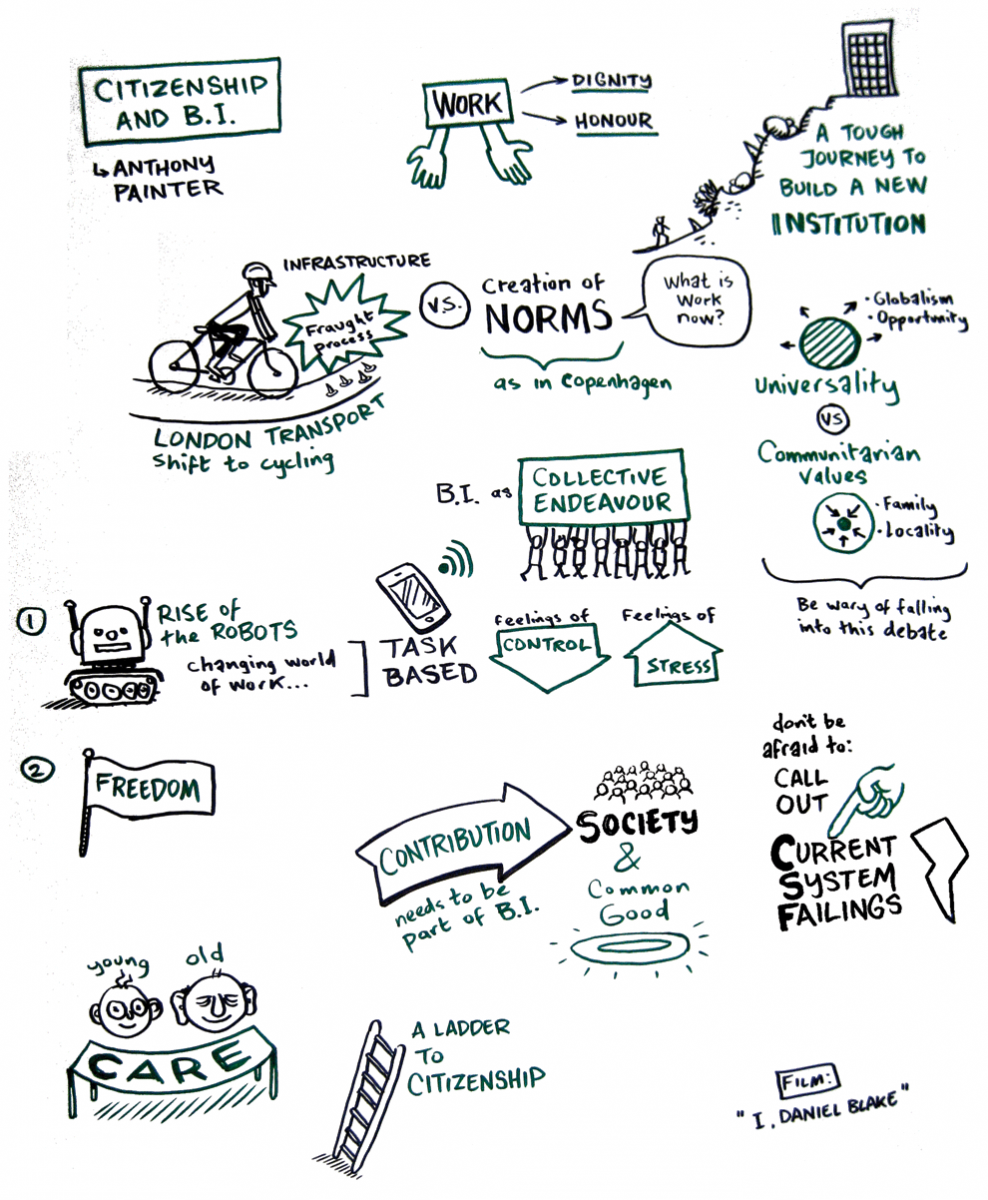 CITIZENSHIP
AND B.I.
ANTHONY
PAINTER
WORK
DIGNITY
HONOUR
A TOUGH
JOURNEY TO
BUILD A NEW
INSTITUTION
INFRASTRUCTURE
Fraught
process
LONDON TRANSPORT
Shift to cycling
V.S.
Creation of
NORMS
as in Copenhagen
What is
work
now?
• Globalism
• Opportunity
Universality
VS
Communitarian
values
• Family
• Locality
Be wary of falling
into this debate
B.I. as
COLLECTIVE
ENDEAVOUR
1
RISE of
the ROBOTS
changing world
of work...
TASK
BASED
Feelings of
CONTROL
Feelings of
STRESS
2
FREEDOM
CONTRIBUTION
needs to be
part of B.I.
SOCIETY
&
Common
Good
don't be
afraid to:
CALL
OUT
CURRENT
SYSTEM
FAILINGS
young
old
CARE
A LADDER
TO
CITIZENSHIP
FILM:
"I, DANIEL BLAKE"